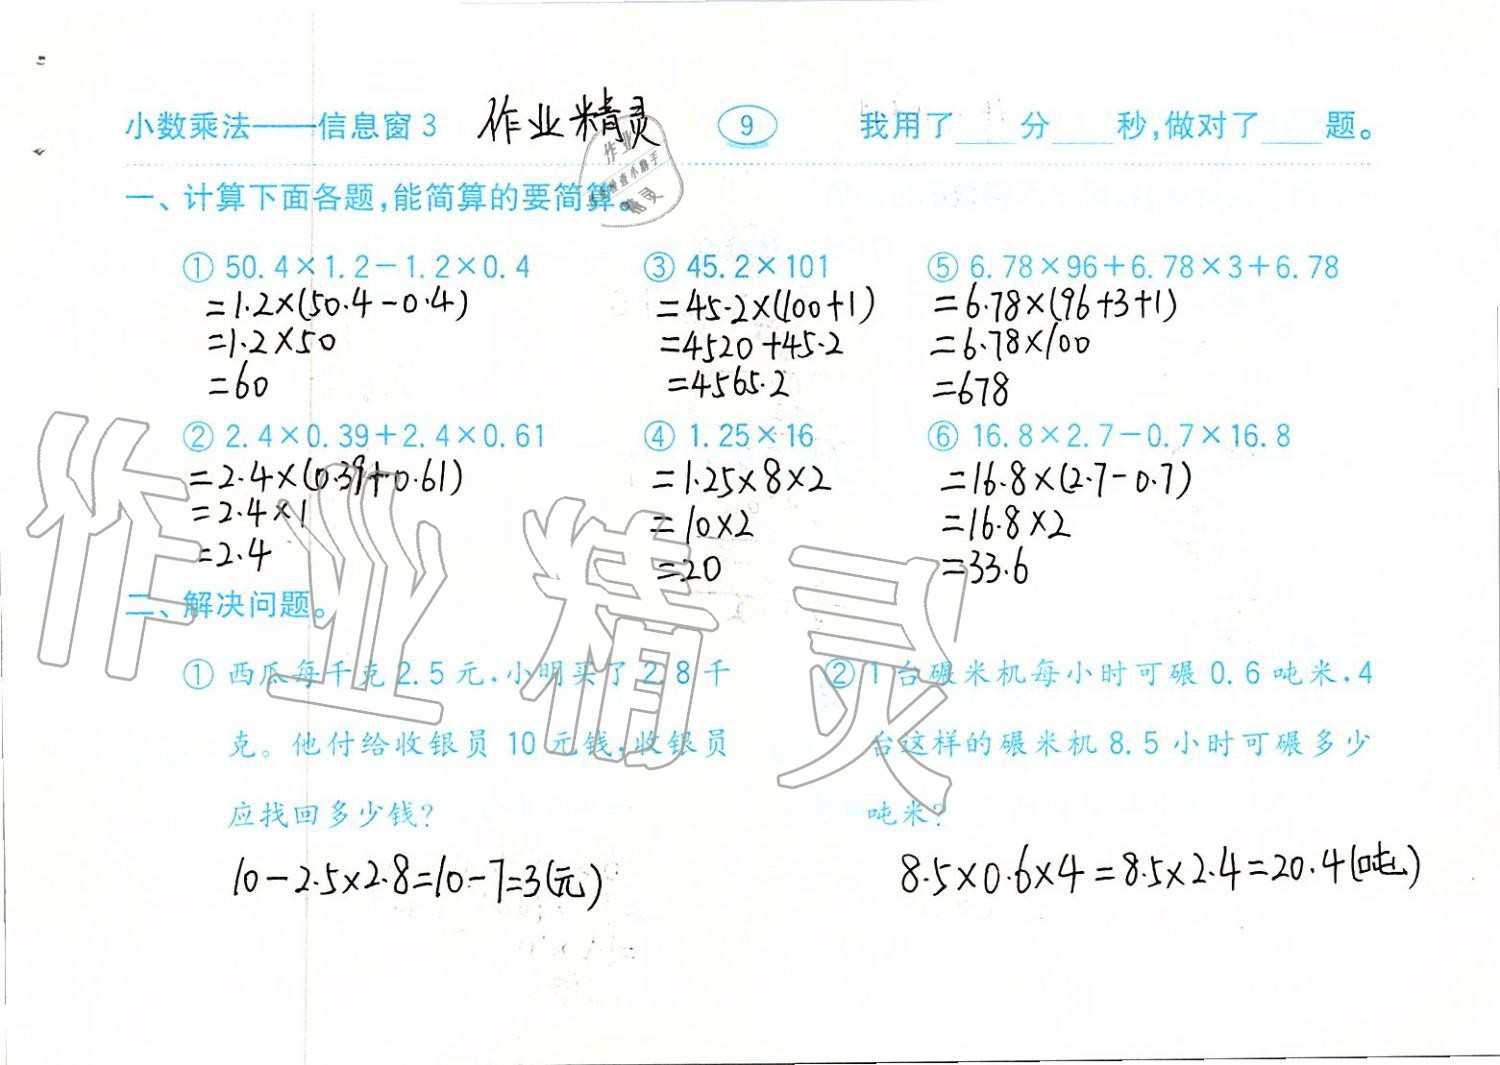 小数乘法——信息窗3 作业精灵 9 我用了____分____秒,做对了____题。
作业
检查小助手
精灵
一、计算下面各题,能简算的要简算。
① 50.4×1.2-1.2×0.4
=1.2×(50.4-0.4)
=1.2×50
=60
③ 45.2×101
=45.2×(100+1)
=4520+45.2
=4565.2
⑤ 6.78×96+6.78×3+6.78
=6.78×(96+3+1)
=6.78×100
=678
② 2.4×0.39+2.4×0.61
=2.4×(0.39+0.61)
=2.4×1
=2.4
④ 1.25×16
=1.25×8×2
=10×2
=20
⑥ 16.8×2.7-0.7×16.8
=16.8×(2.7-0.7)
=16.8×2
=33.6
作业精灵
二、解决问题。
① 西瓜每千克2.5元,小明买了2.8千
克。他付给收银员10元钱,收银员
应找回多少钱?
10-2.5×2.8=10-7=3(元)
② 1台碾米机每小时可碾0.6吨米,4
台这样的碾米机8.5小时可碾多少
吨米?
8.5×0.6×4=8.5×2.4=20.4(吨)